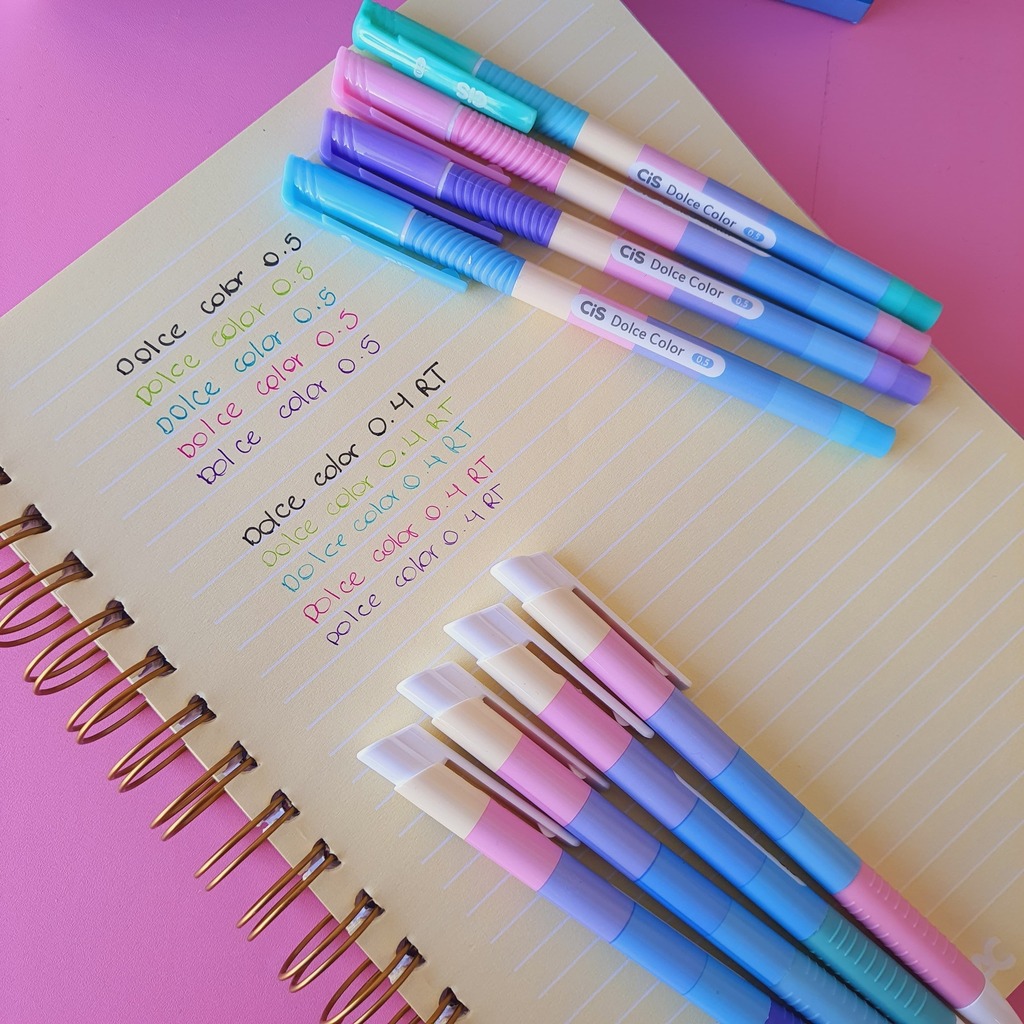 CiS
CiS Dolce Color 0.5
CiS Dolce Color 0.5
CiS Dolce Color 0.5
Dolce color 0.5
Dolce color 0.5
Dolce color 0.5
Dolce color 0.5
Dolce color 0.5
Dolce color 0.4 RT
Dolce color 0.4 RT
Dolce color 0.4 RT
Dolce color 0.4 RT
Dolce color 0.4 RT